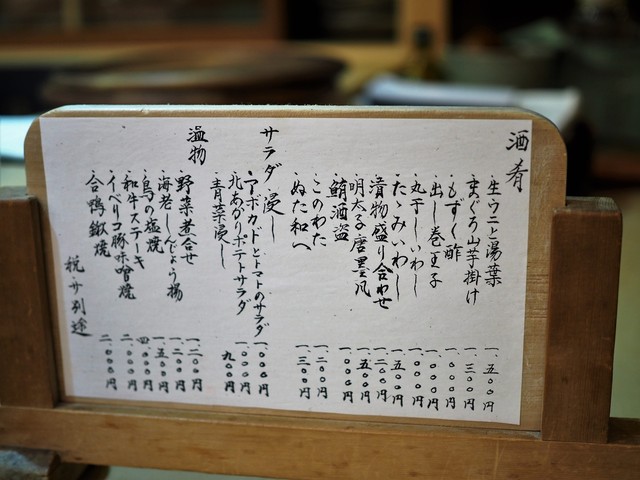 酒肴
・生ウニと湯葉 一、五〇〇円
・まぐろ山芋掛け 一、三〇〇円
・もずく酢 一、〇〇〇円
・出し巻玉子 一、〇〇〇円
・丸干しいわし 一、〇〇〇円
・たゝみいわし 一、五〇〇円
・漬物盛り合わせ 一、二〇〇円
・明太子唐墨凡 一、五〇〇円
・鮪酒盗 一、〇〇〇円
・このわた 一、二〇〇円
・ぬた和へ 一、三〇〇円
サラダ・浸し
・アボカドとトマトのサラダ 一、〇〇〇円
・北あかりポテトサラダ 一、〇〇〇円
・青菜浸し 九〇〇円
温物
・野菜煮合せ 一、二〇〇円
・海老しんじょう揚 一、二〇〇円
・鳥の塩焼 一、五〇〇円
・和牛ステーキ 四、〇〇〇円
・イベリコ豚味噌焼 二、〇〇〇円
・合鴨鍬焼 二、〇〇〇円
税・サ別途